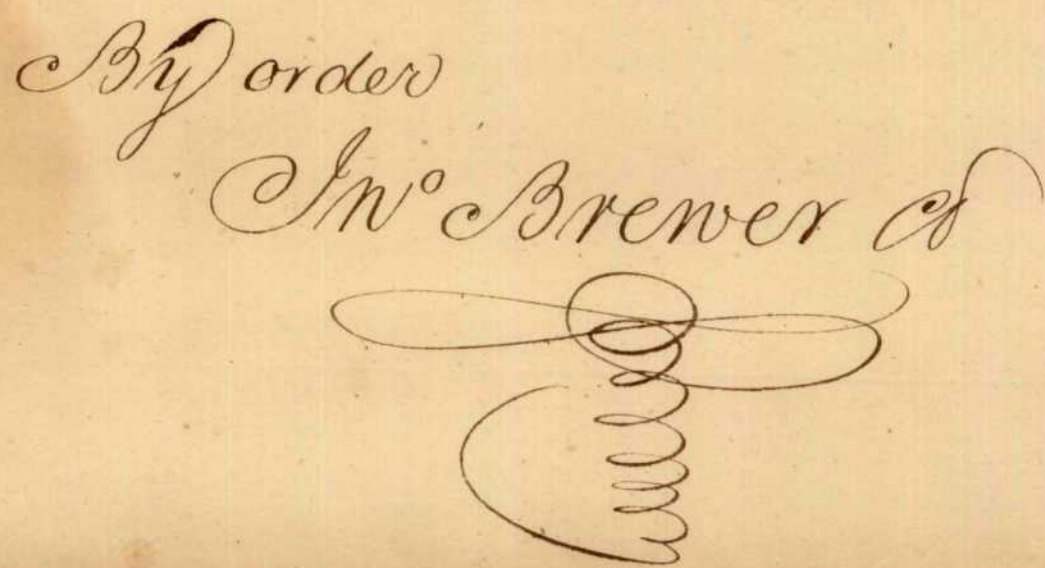 By order
Jnº Brewer Cl